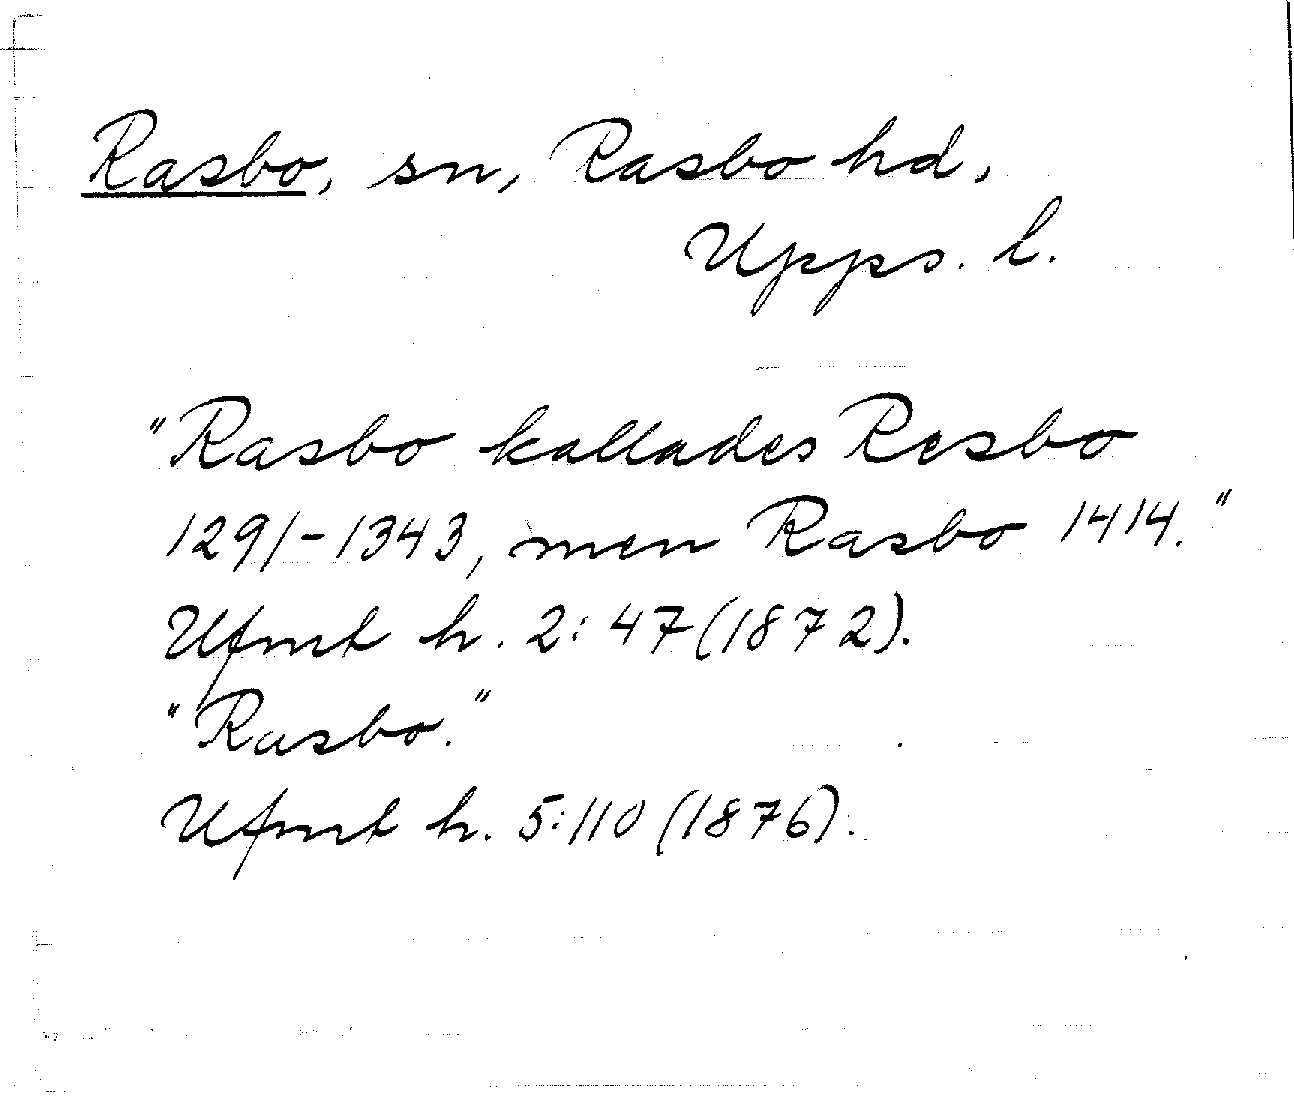 Rasbo, sn, Rasbo hd,
Upps. l.
"Rasbo kallades Resbo
1291-1343, men Rasbo 1414."
Ufmt h. 2:47 (1872).
"Rasbo."
Ufmt h. 5:110 (1876).